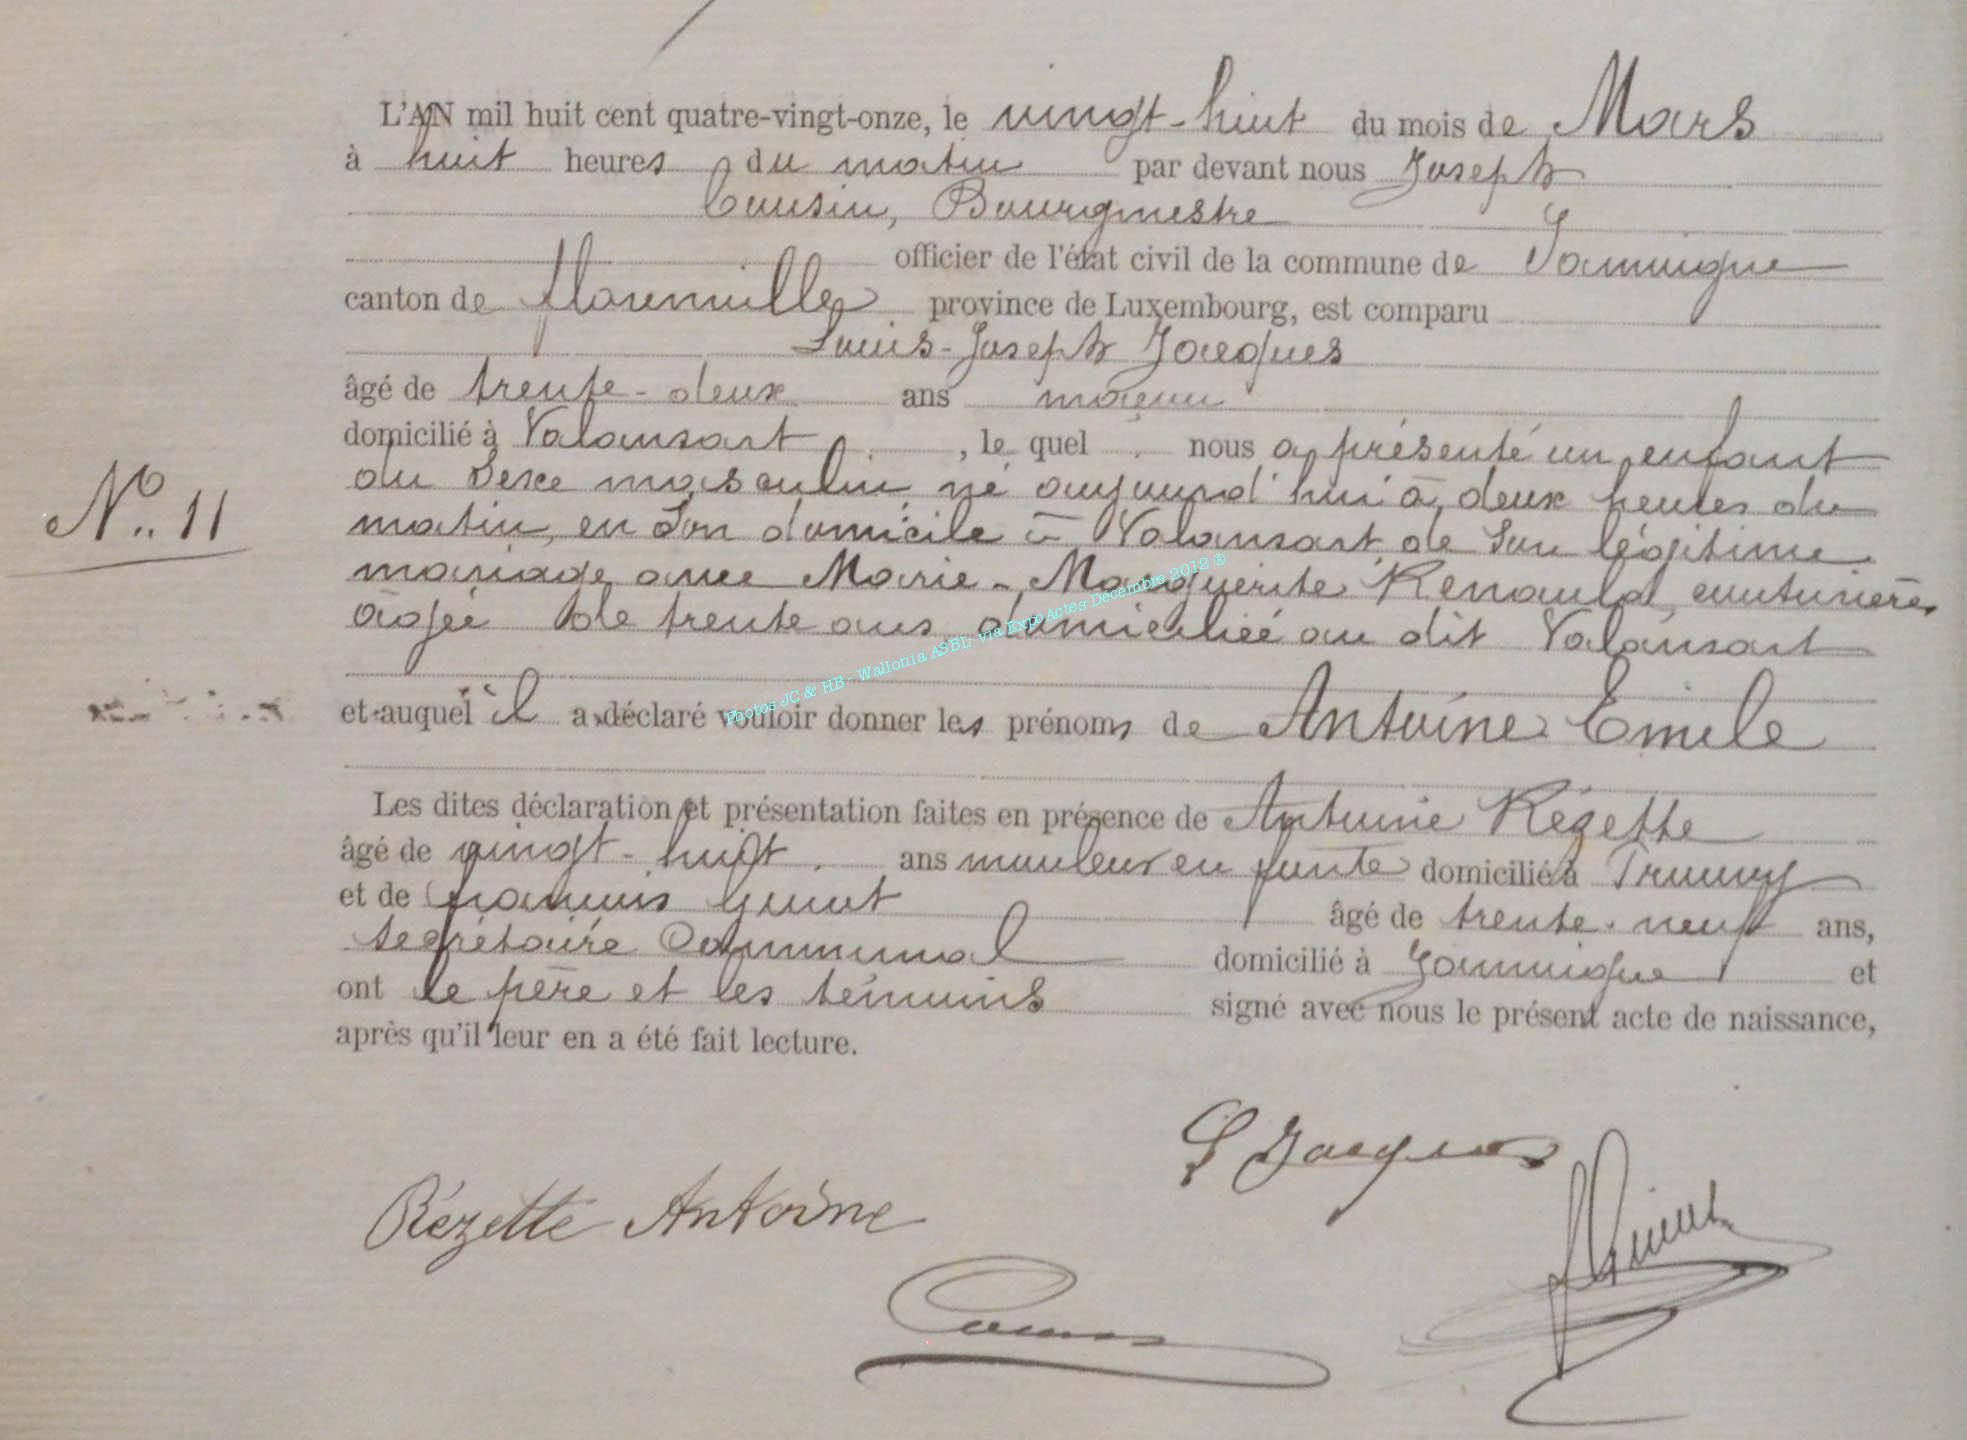 L'AN mil huit cent quatre-vingt-onze, le vingt-huit du mois de Mars
à huit heures du matin par devant nous Joseph
Cousin, Bourgmestre
officier de l'état civil de la commune de Jamoigne
canton de florenville province de Luxembourg, est comparu
Louis-Joseph Jacques
âgé de trente-deux ans maçon
domicilié à Valansart, le quel nous a présenté un enfant
du sexe masculin, né aujourd'hui à deux heures du
matin, en son domicile à Valansart, de son légitime
mariage avec Marie-Marguerite Renauld, couturière,
âgée de trente ans domiciliée au dit Valansart
et auquel il a déclaré vouloir donner les prénoms de Antoine Emile
Les dites déclaration et présentation faites en présence de Antoine Rézette
âgé de vingt-huit ans mouleur en fonte domicilié à
et de françois âgé de trente-neuf ans,
secrétaire Communal domicilié à Jamoigne et
ont le père et les témoins signé avec nous le présent acte de naissance,
après qu'il leur en a été fait lecture.
No. 11
Photos JC & HB - Wallonia ASBL via Expo Actes-Décembre 2012 ®
L Jacques
Rézette Antoine